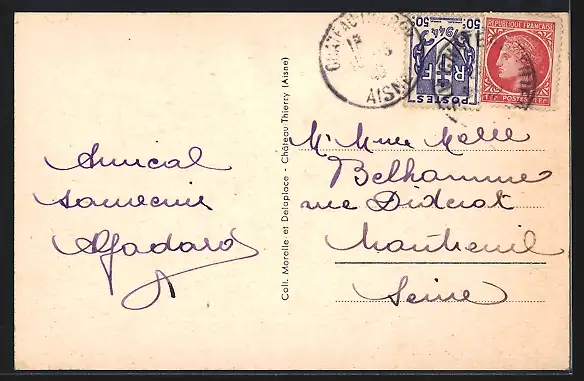 Amical
souvenir
CHATEAU-THIERRY
AISNE
50c 50c
1944
RF
POSTES
REPUBLIQUE FRANÇAISE
1F POSTES 1F
Coll. Morelle et Delaplace - Château-Thierry (Aisne)
Mr Mme
Belhomme
rue Diderot
Montreuil
Seine